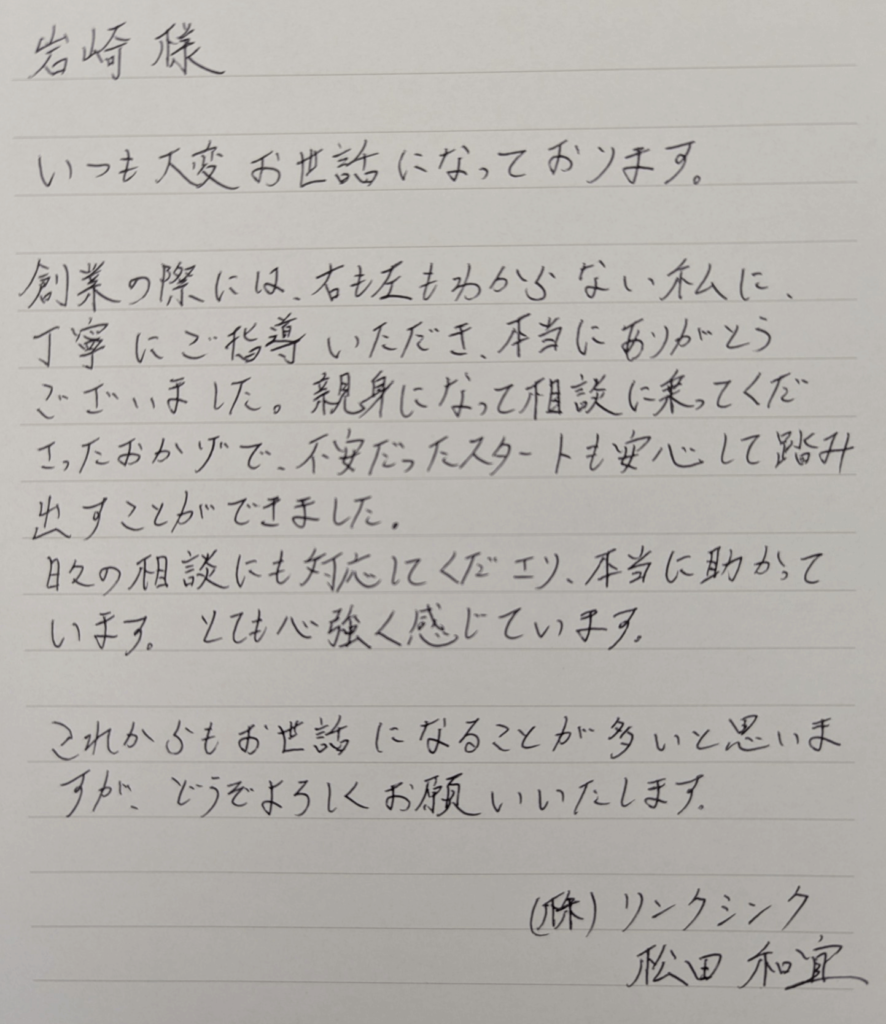 岩崎 様
いつも大変お世話になっております。
創業の際には、右も左もわからない私に、
丁寧にご指導いただき、本当にありがとう
ございました。親身になって相談に乗ってくだ
さったおかげで、不安だったスタートも安心して踏み
出すことができました。
日々の相談にも対応してくださり、本当に助かって
います。とても心強く感じています。
これからもお世話になることが多いと思いま
すが、どうぞよろしくお願いいたします。
(株)リンクシンク
松田 和宜